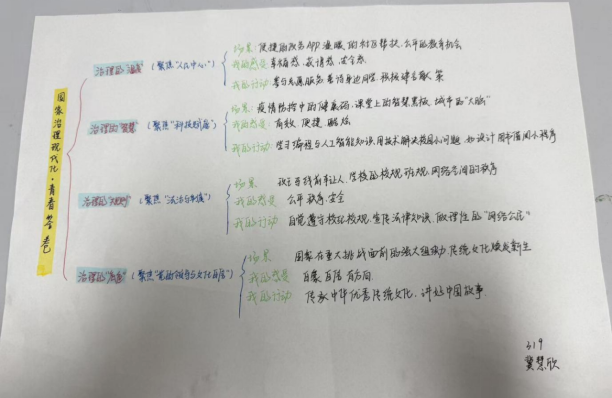 国家治理现代化·青春答卷
治理的"温度" (聚焦"人民中心")
场景: 便捷的政务APP 温暖的社区帮扶、公平的教育机会
我的感受: 幸福感、获情感、安全感
我的行动: 参与志愿服务 善待身边同学, 积极建言献策
治理的"智慧" (聚焦"科技赋能")
场景: 疫情防控中的健康码、课堂上的智慧黑板, 城市的"大脑"
我的感受: 有效 便捷 酷炫
我的行动: 学习编程与人工智能知识, 用技术解决校园小问题, 如设计图书借阅小程序
治理的"规则" (聚焦"法治与制度")
场景 斑马线前车让人, 学校的校规 班规, 网络空间的秩序
我的感受 公平 秩序, 安全
我的行动 自觉遵守校纪校规, 宣传法律知识, 做理性的"网络公民"
治理的"底色" (聚焦"党的领导与文化自信")
场景 国家在重大挑战面前的强大组织力, 传统文化焕发新生
我的感受 自豪 自信 有方向
我的行动 传承中华优秀传统文化、讲好中国故事.
319
冀慧欣